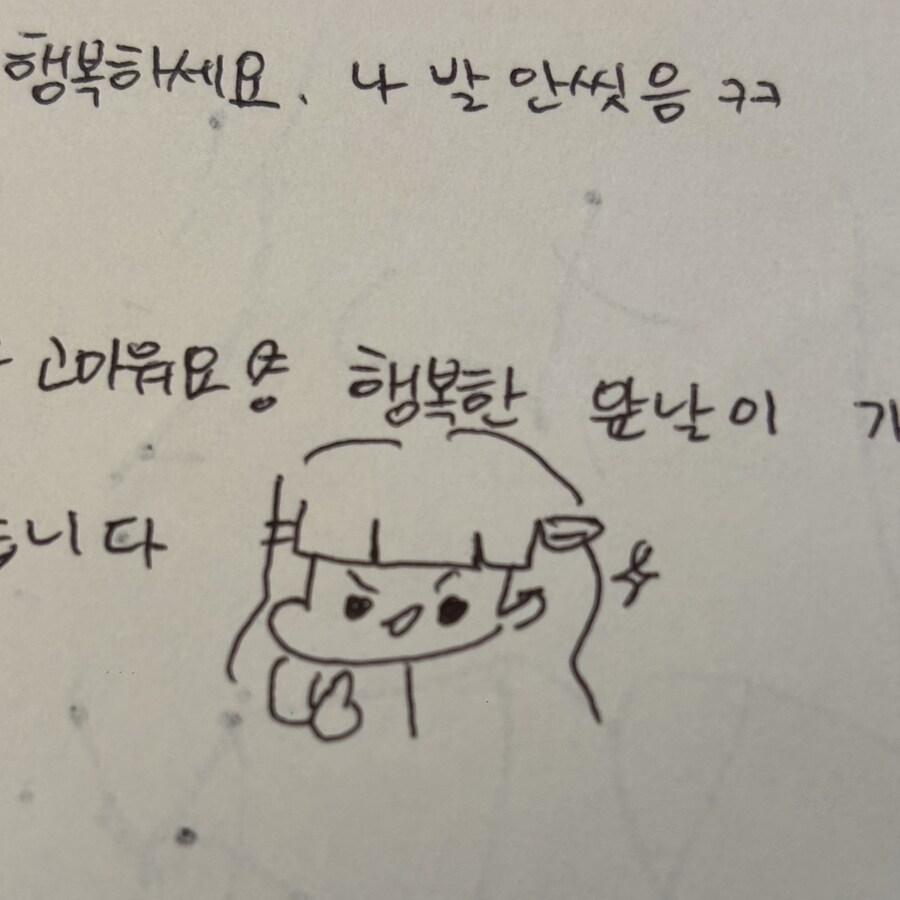 행복하세요. 나 발 안씻음 ㅋㅋ
고마워요용 행복한 앞날이
습니다